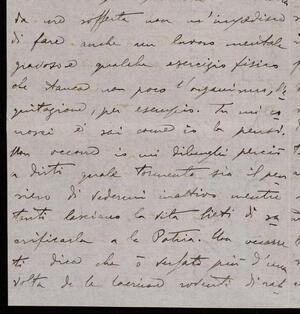 da me sofferte non m'impedirono
di fare anche un lavoro mentale
gravoso e qualche esercizio fisico
che stanca non poco l'organismo, l'e-
quitazione, per esempio. Tu mi co-
nosci e sai come io la pensi.
Non occorre io mi dilunghi perciò
a dirti quale tormento sia il pen-
siero di vedermi inattivo mentre
tanti lasciano la vita lieti di sa-
crificarla a la Patria. Non occorre
ti dica che ò versato più d'una
volta de le lacrime roventi di rab-